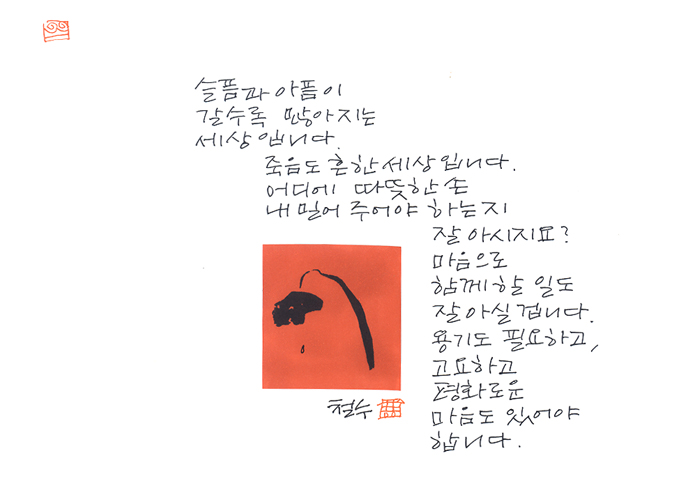 슬픔과 아픔이
갈수록 많아지는
세상입니다.
죽음도 흔한 세상입니다.
어디에 따뜻한 손
내밀어 주어야 하는지
잘 아시지요?
마음으로
함께 할 일도
잘 아실 겁니다.
용기도 필요하고,
고요하고
평화로운
마음도 있어야
합니다.
철수